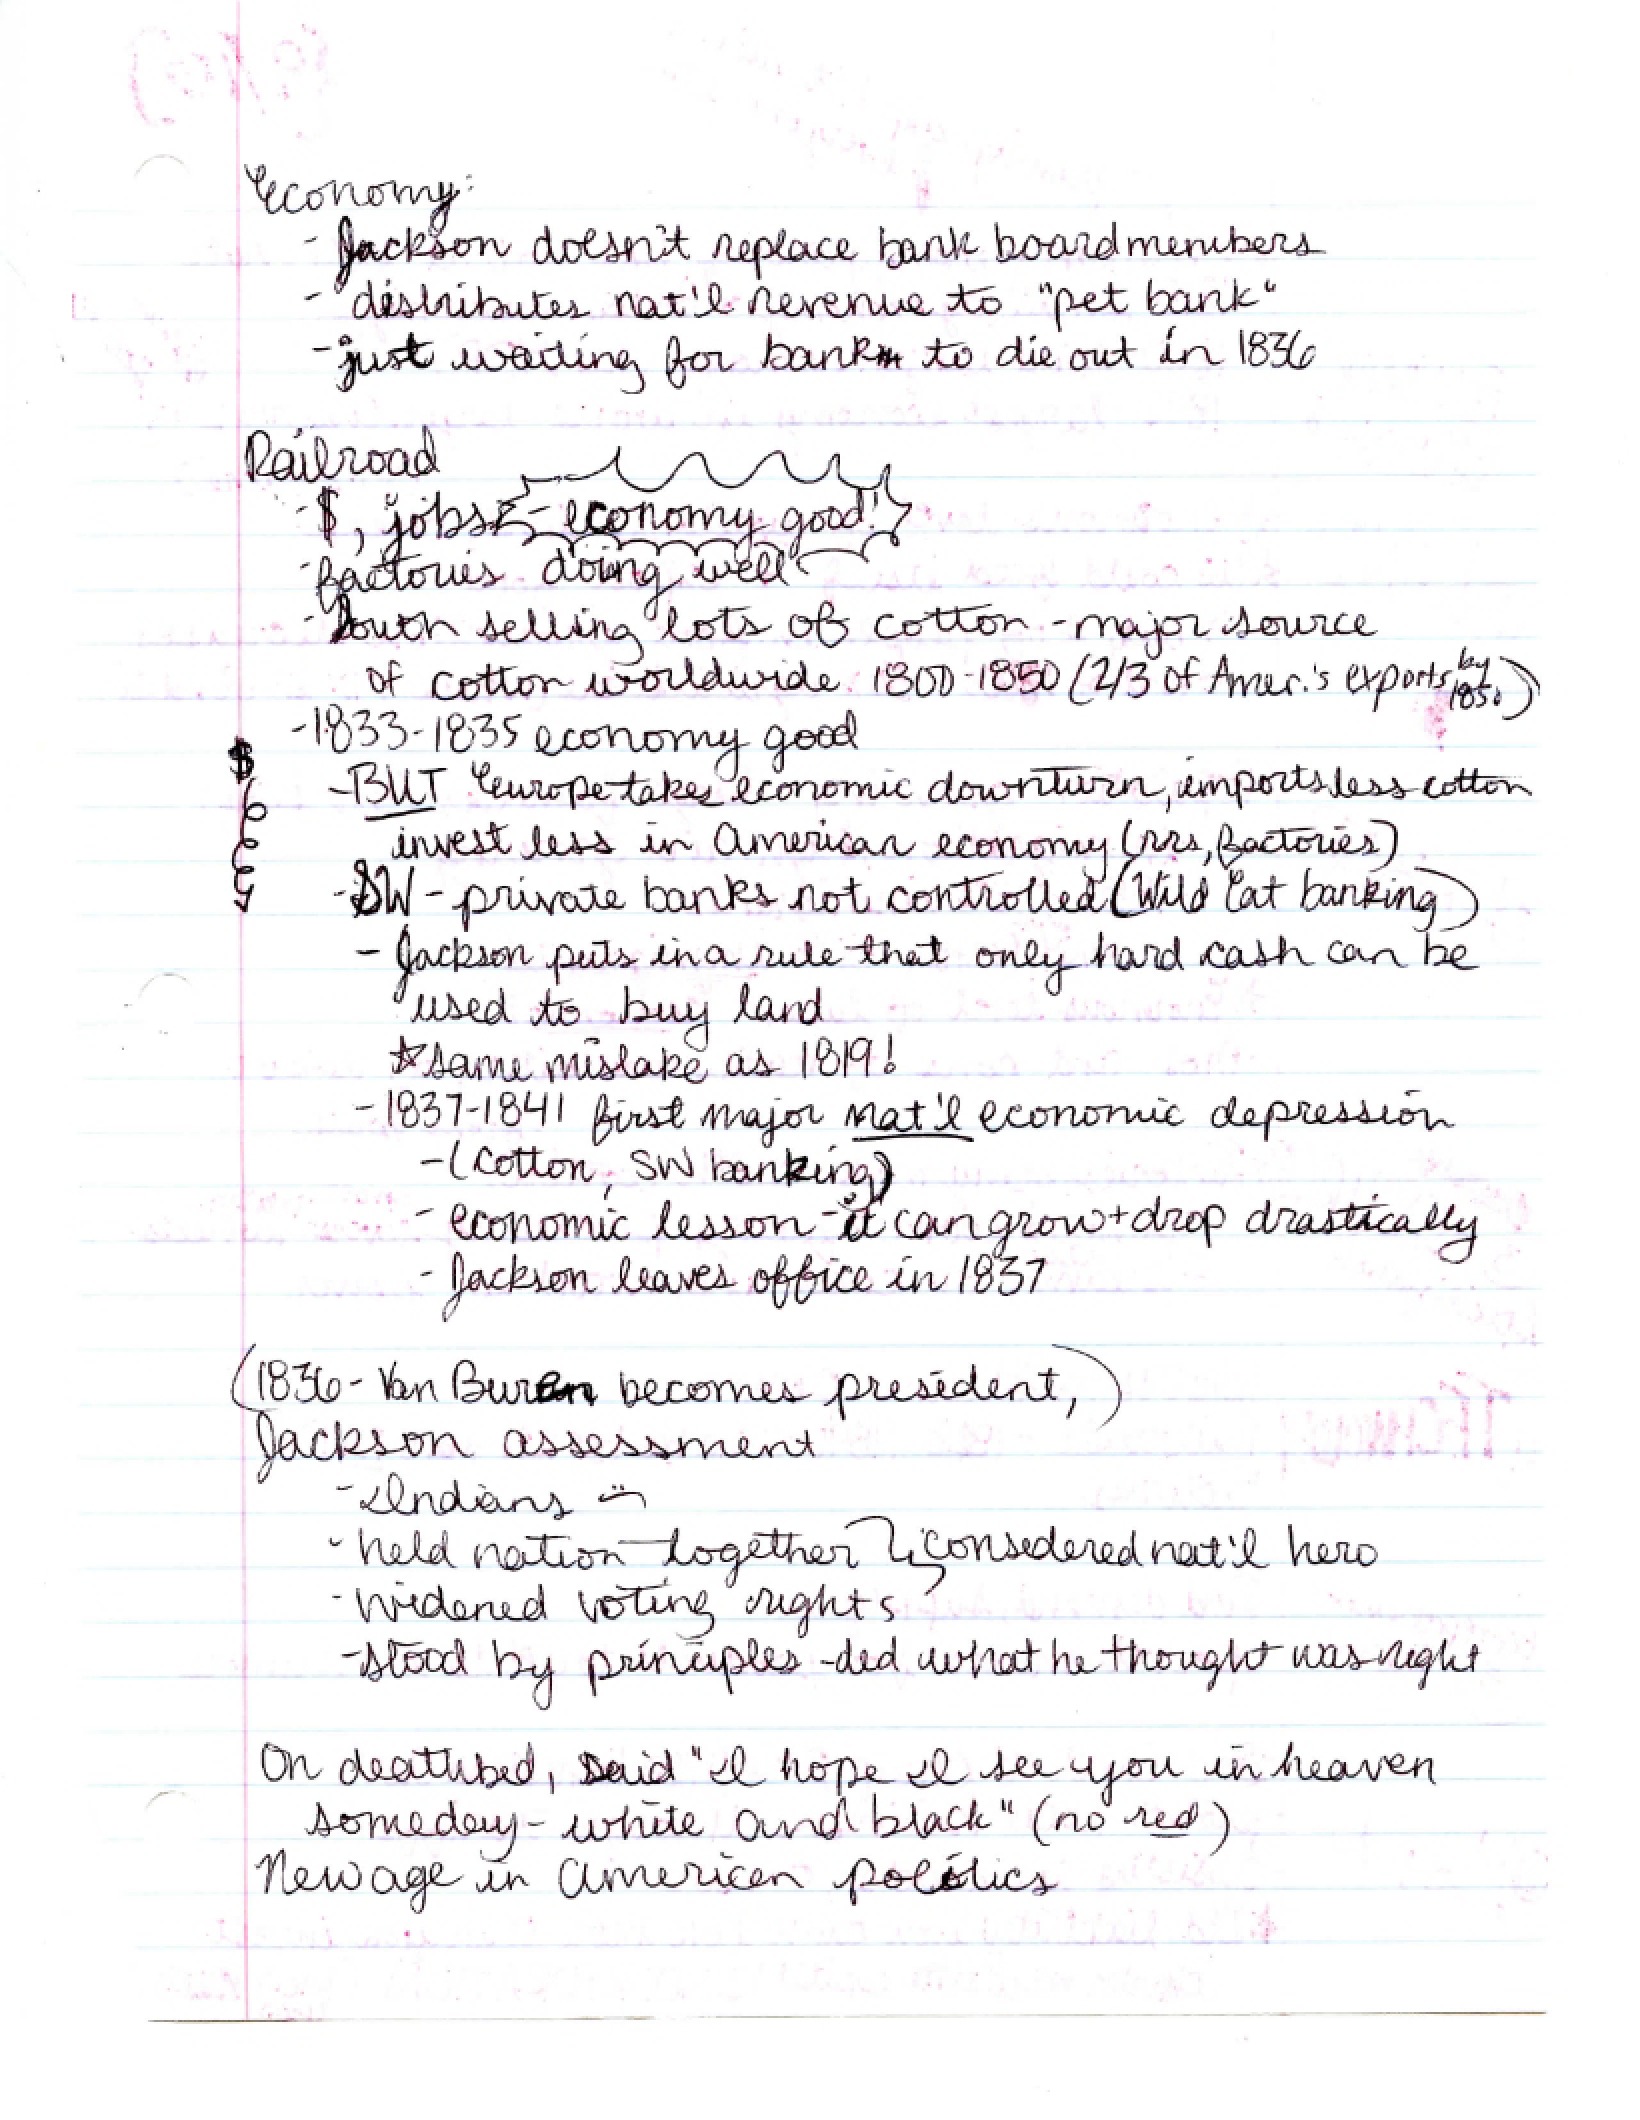 Economy:
- Jackson doesn't replace bank boardmembers
- distributes nat'l revenue to "pet bank"
- just waiting for bank to die out in 1836
Railroad
- $, jobs - economy good!
- factories doing well
- South selling lots of cotton - major source
of cotton worldwide 1800-1850 (2/3 of Amer.'s exports by 1850)
- 1833-1835 economy good
$
- BUT Europe takes economic downturn, imports less cotton
invest less in American economy (rrs, factories)
- SW - private banks not controlled (Wild Cat banking)
- Jackson puts in a rule that only hard cash can be
used to buy land
☆ same mistake as 1819!
- 1837-1841 first major nat'l economic depression
- (cotton, SW banking)
- economic lesson - it can grow + drop drastically
- Jackson leaves office in 1837
(1836 - Van Buren becomes president,)
Jackson assessment
- Indians
- held nation together considered nat'l hero
- widened voting rights
- stood by principles - did what he thought was right
On deathbed, said "I hope I see you in heaven
someday - white and black" (no red)
New age in American politics